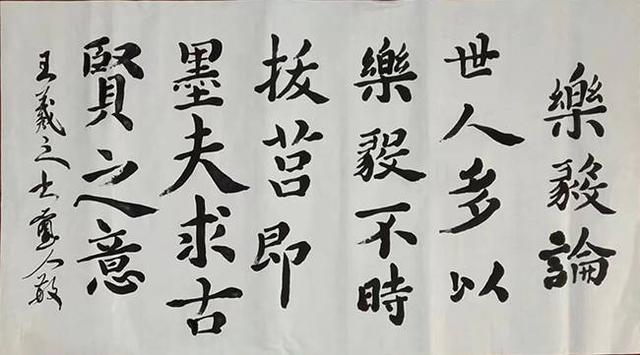 樂毅論
世人多以
樂毅不時
拔莒即
墨夫求古
賢之意
王羲之書